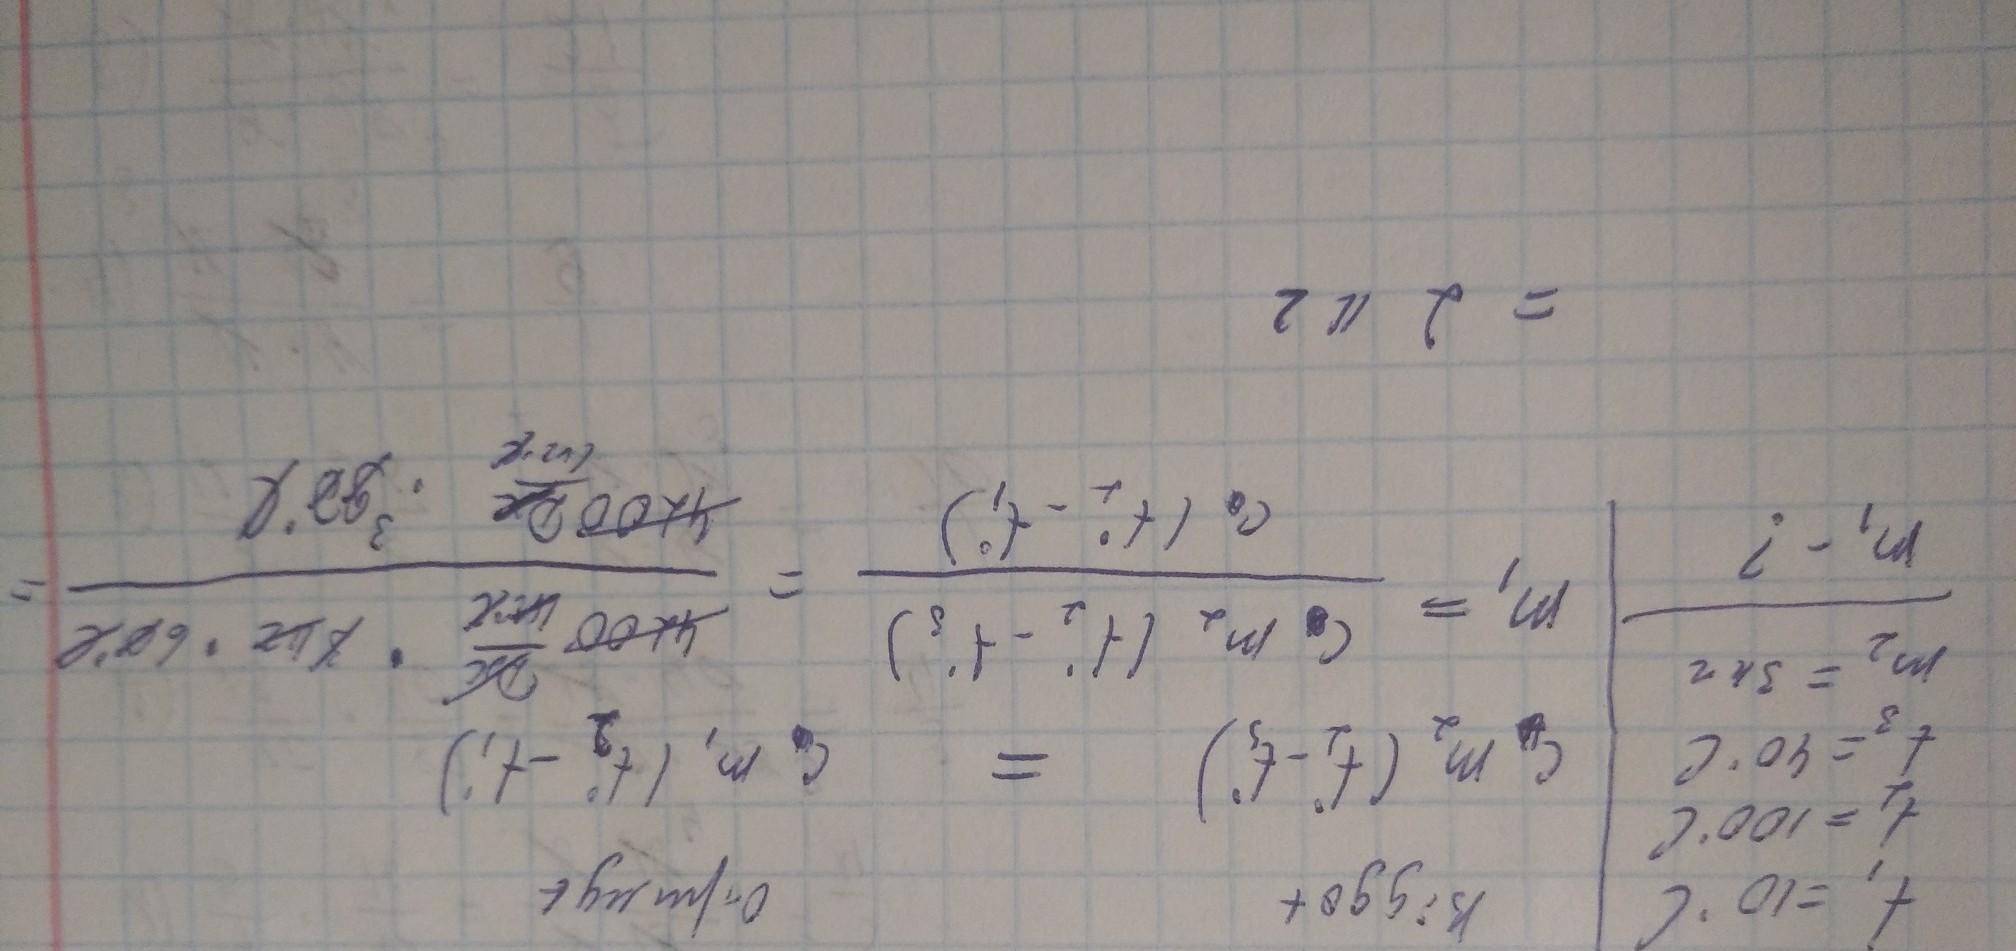 t₁ = 10°C
t₂ = 100°C
t₃ = 40°C
m₂ = 3кг
m₁ - ?
Віддає Отримує
c m₂ (t₂° - t₃°) = c m₁ (t₂° - t₁°)
m₁ = c m₂ (t₂° - t₃°) / c (t₂° - t₁°) = 4200 Дж/кг·К · 3кг · 60°C / 4200 Дж/кг·К · 90°C =
= 2 кг